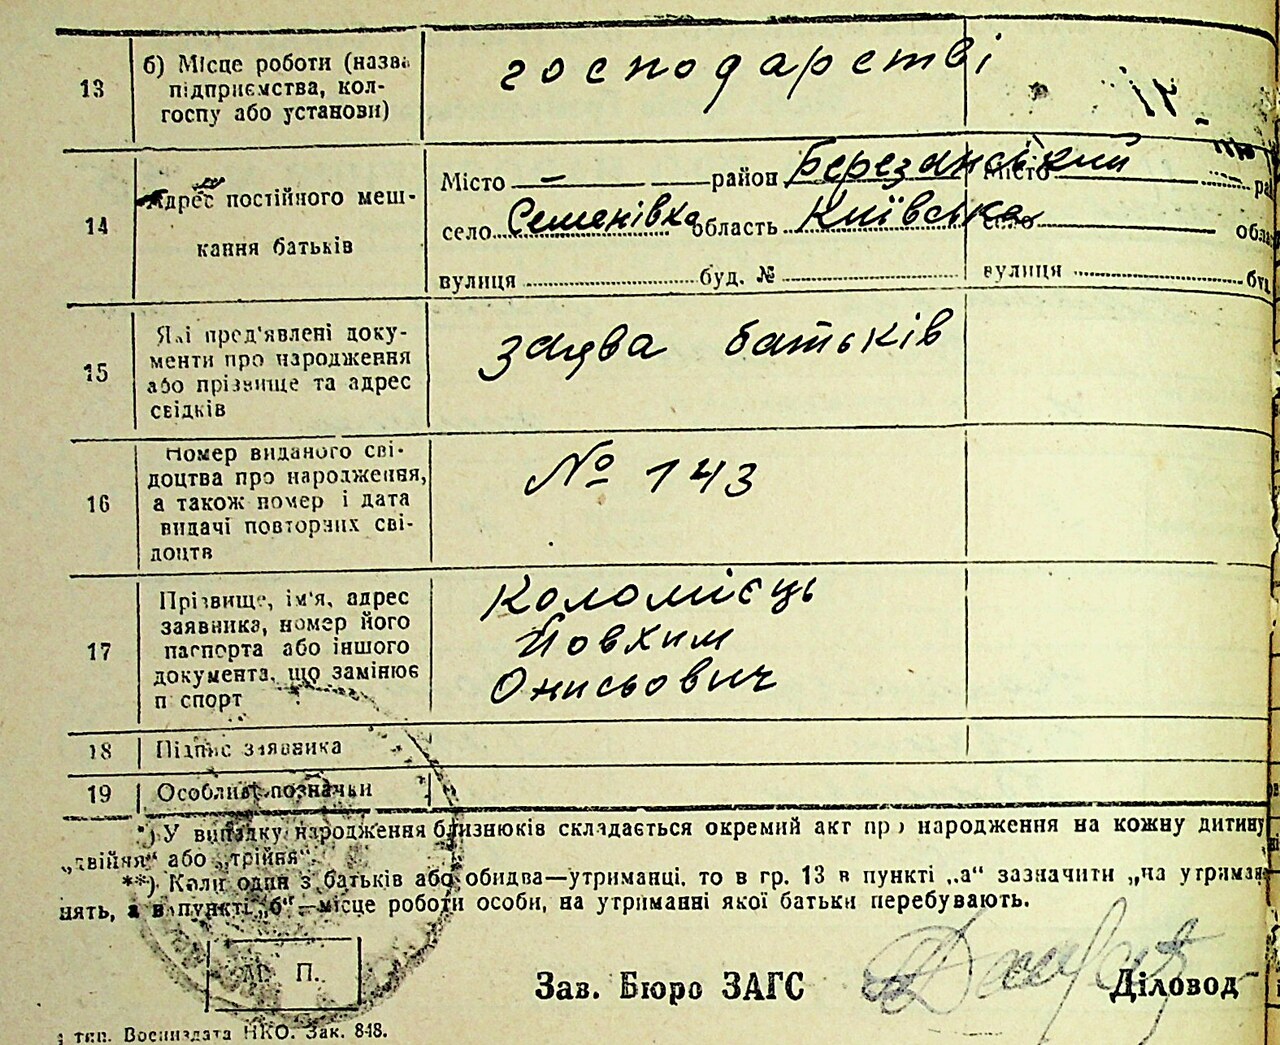 13
б) Місце роботи (назва
підприємства, кол-
госпу або установи)
господарстві
14
Адрес постійного меш-
кання батьків
Місто — район Березанський Місто
село Семенівка область Київська село
вулиця буд. № вулиця
15
Які пред'явлені доку-
менти про народження
або прізвище та адрес
свідків
заява батьків
16
Номер виданого сві-
доцтва про народження,
а також номер і дата
видачі повторних сві-
доцтв
№ 143
17
Прізвище, ім'я, адрес
заявника, номер його
паспорта або іншого
документа, що замінює
п спорт
Коломієць
Йовхим
Онисьович
18 Підпис заявника
19 Особливі позначки
*) У випадку народження близнюків складається окремий акт про народження на кожну дитину
„двійня“ або „трійня“.
**) Коли один з батьків або обидва—утриманці, то в гр. 13 в пункті „а“ зазначити „на утриман
нять, а в пункті „б“—місце роботи особи, на утриманні якої батьки перебувають.
М. П.
Зав. Бюро ЗАГС
Діловод
тип. Воениздата НКО. Зак. 848.